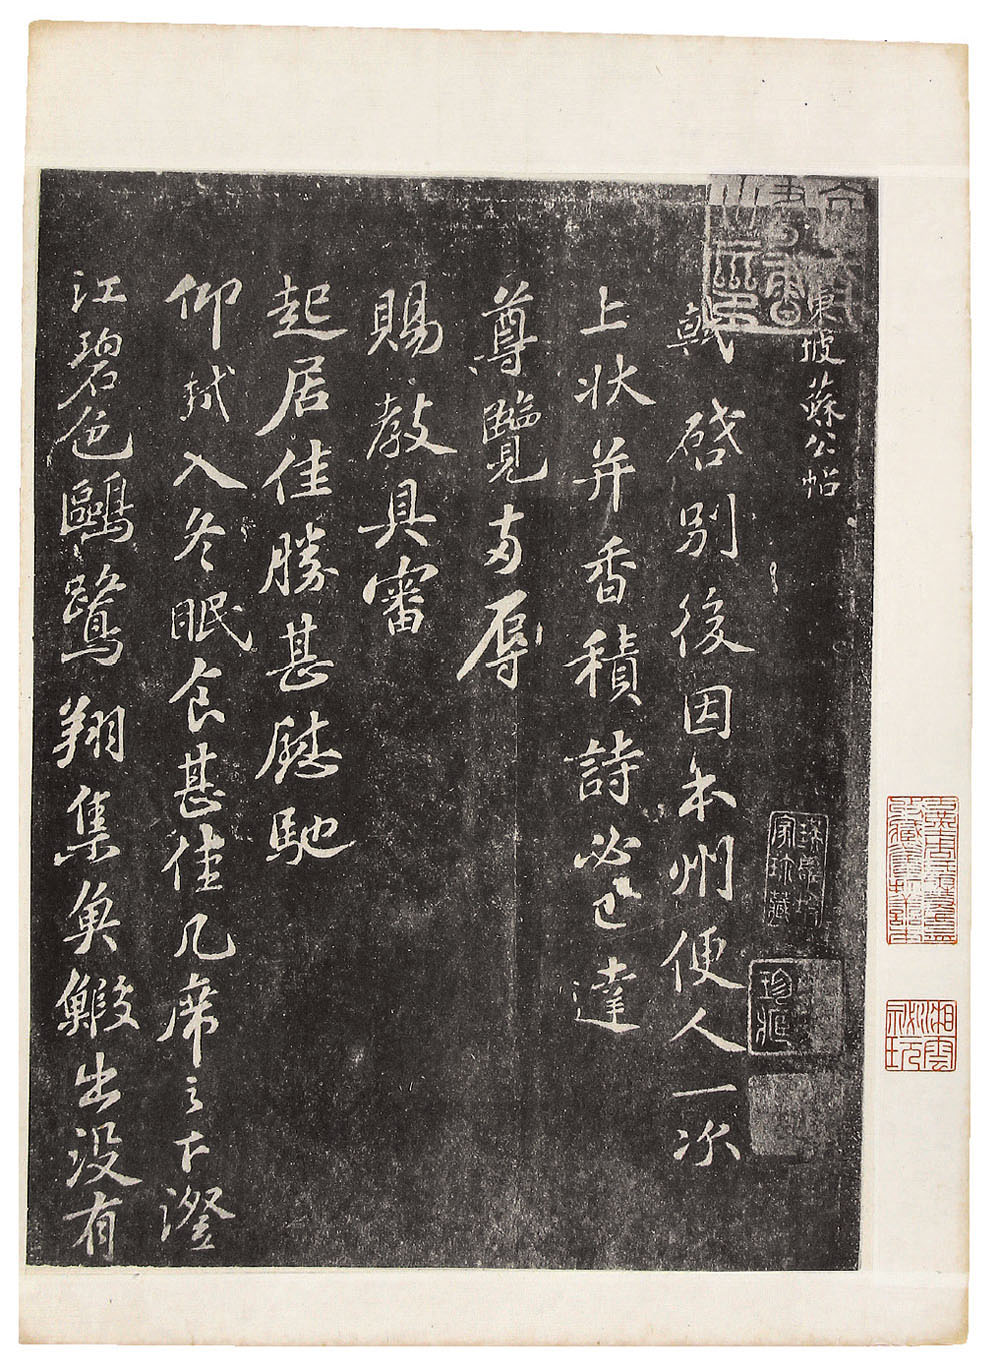 東坡蘇公帖
軾啓別後因本州便人一次
上狀并香積詩必已達
尊覽兩辱
賜教具審
起居佳勝甚慰馳
仰軾入冬眠食甚佳几席之下澄
江碧色鷗鷺翔集魚鰕出沒有
珍藏
家珍藏
湘雲秘玩